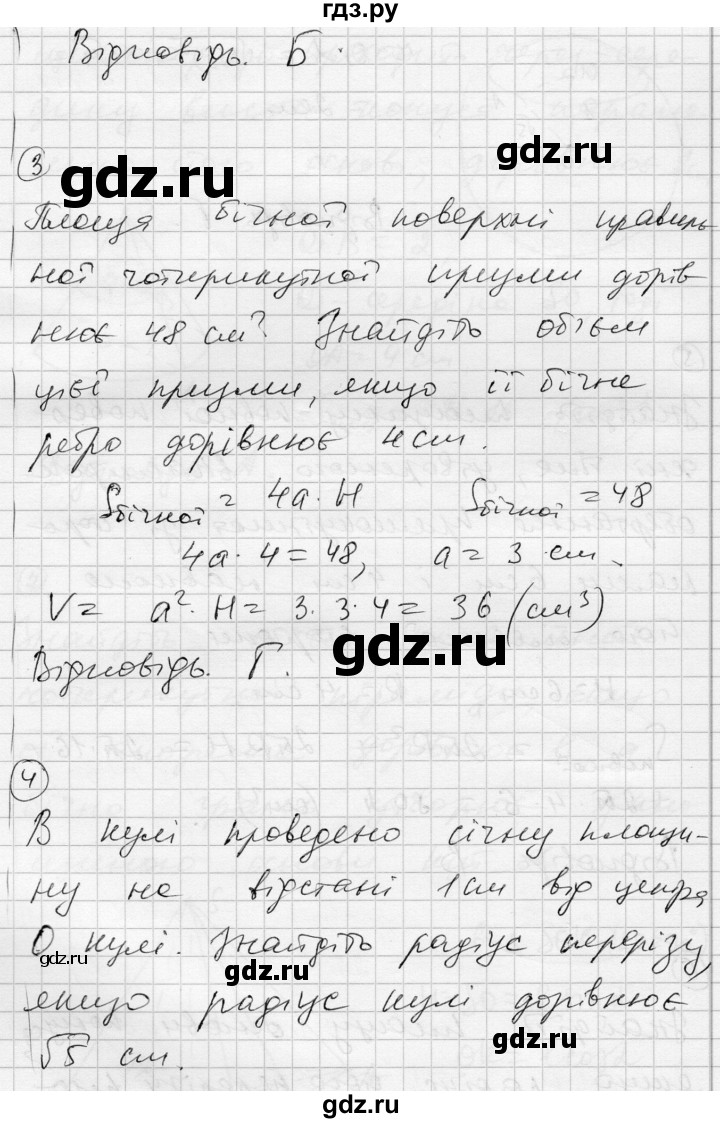 гдз.ру
Відповідь. Б.
gdz.ru
3
gdz.ru
Площа бічної поверхні правиль
ної чотирикутної призми дорів
нює 48 см². Знайдіть об'єм
цієї призми, якщо її бічне
ребро дорівнює 4 см.
Sбічної = 4a · H Sбічної = 48
4a · 4 = 48, a = 3 см.
V = a² · H = 3 · 3 · 4 = 36 (см³)
gdz.ru
Відповідь. Г.
4
В кулі проведено січну площи-
ну на відстані 1 см від центра
О кулі. Знайдіть радіус перерізу,
gdz.ru
gdz.ru
gdz.ru
якщо радіус кулі дорівнює
√5 см.
gdz.ru